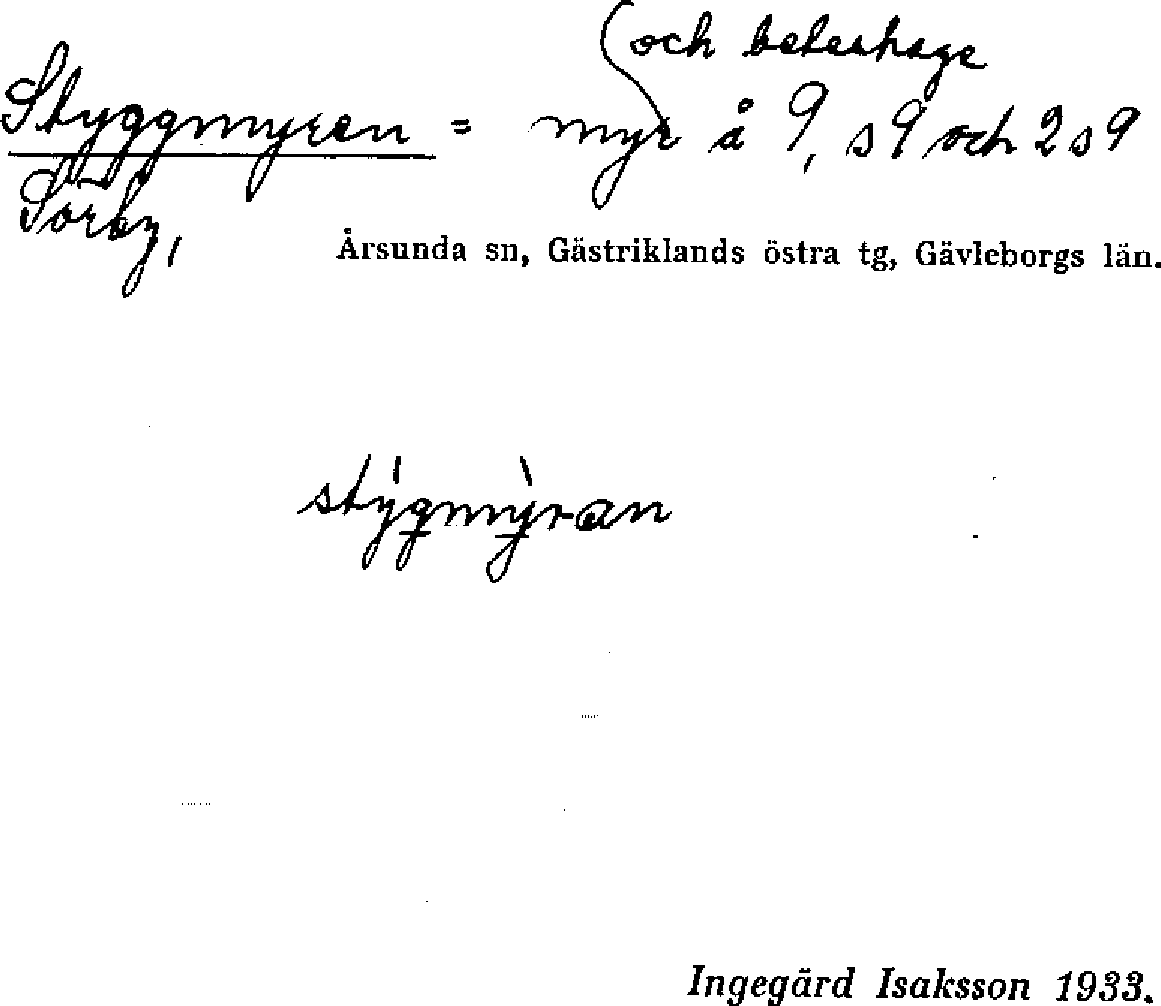 (och beteshage
Styggmyren = myr å 9, s9 och 2 s9
Sörby,
Årsunda sn, Gästriklands östra tg, Gävleborgs län.
stýgmỳran
Ingegärd Isaksson 1933.